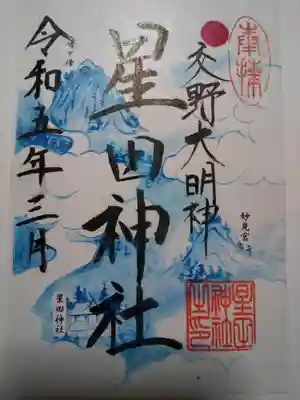 奉拝
交野大明神
星田神社
令和五年三月
妙見宮
星田神社
星田神社之印